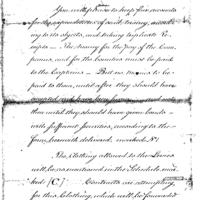 You will please to keep fair accounts
for the expenditures of said money, accord-
ing to its objects, and taking duplicate Re-
ceipts — The money for the pay of the Com-
panies, and for the bounties must be paid
to the Captains — But no monies to be
paid to them, until after they should have
than until they should have given bonds
with sufficient sureties, according to the
form herewith delivered, marked No 1
The Clothing allowed to the Levies
will be, as mentioned in the Schedule, mar-
ked [C.] Contracts are attempting,
for this Clothing, which will be forwarded